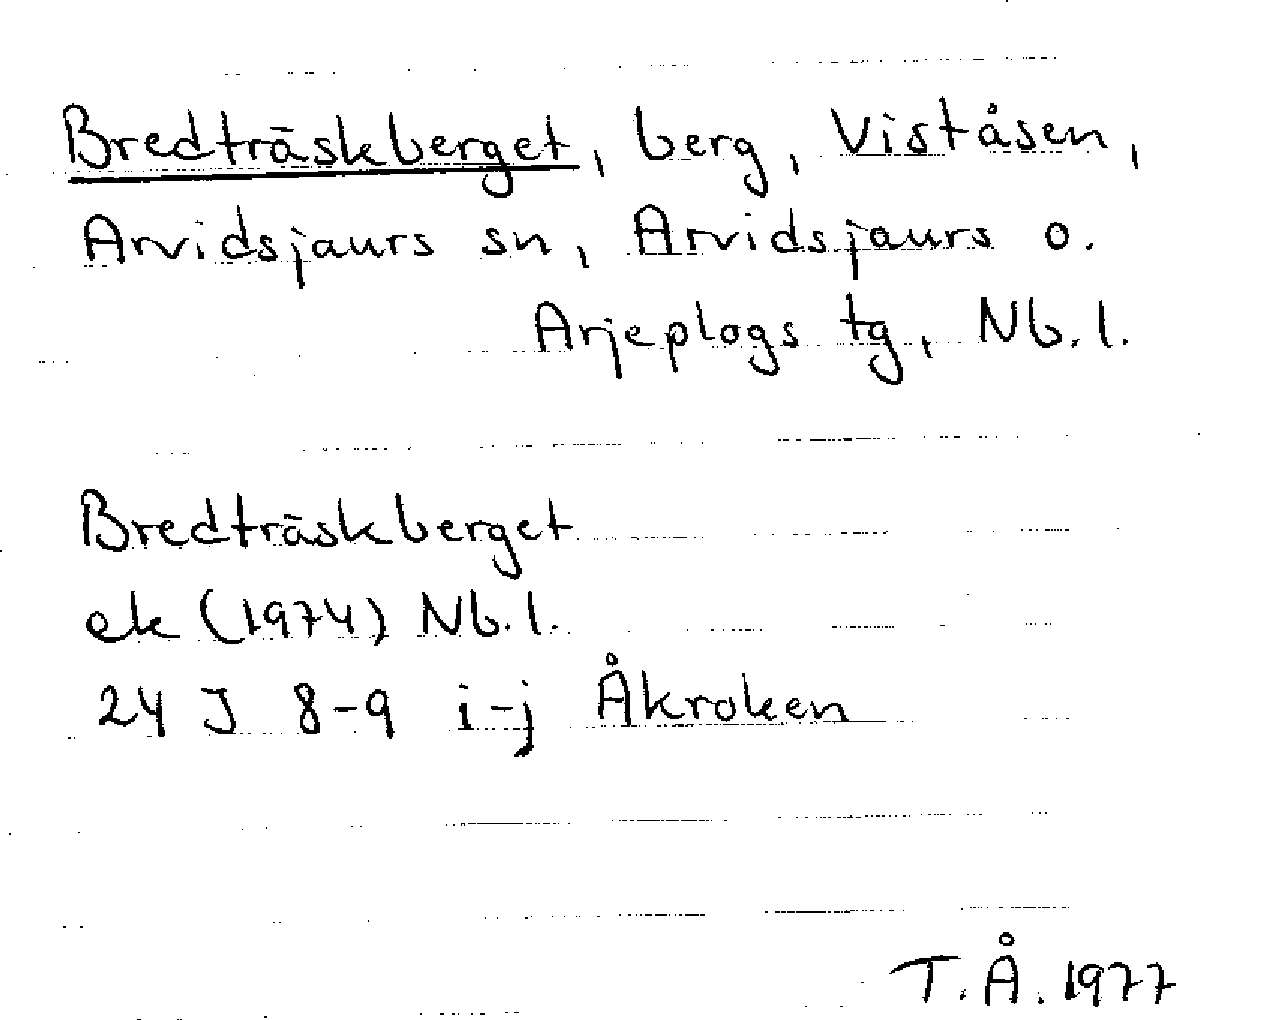 Bredträskberget, berg, Viståsen,
Arvidsjaurs sn, Arvidsjaurs o.
Arjeplogs tg, Nb. l.
Bredträskberget
ek (1974) Nb. l.
24 J 8-9 i-j Åkroken
T. Å. 1977